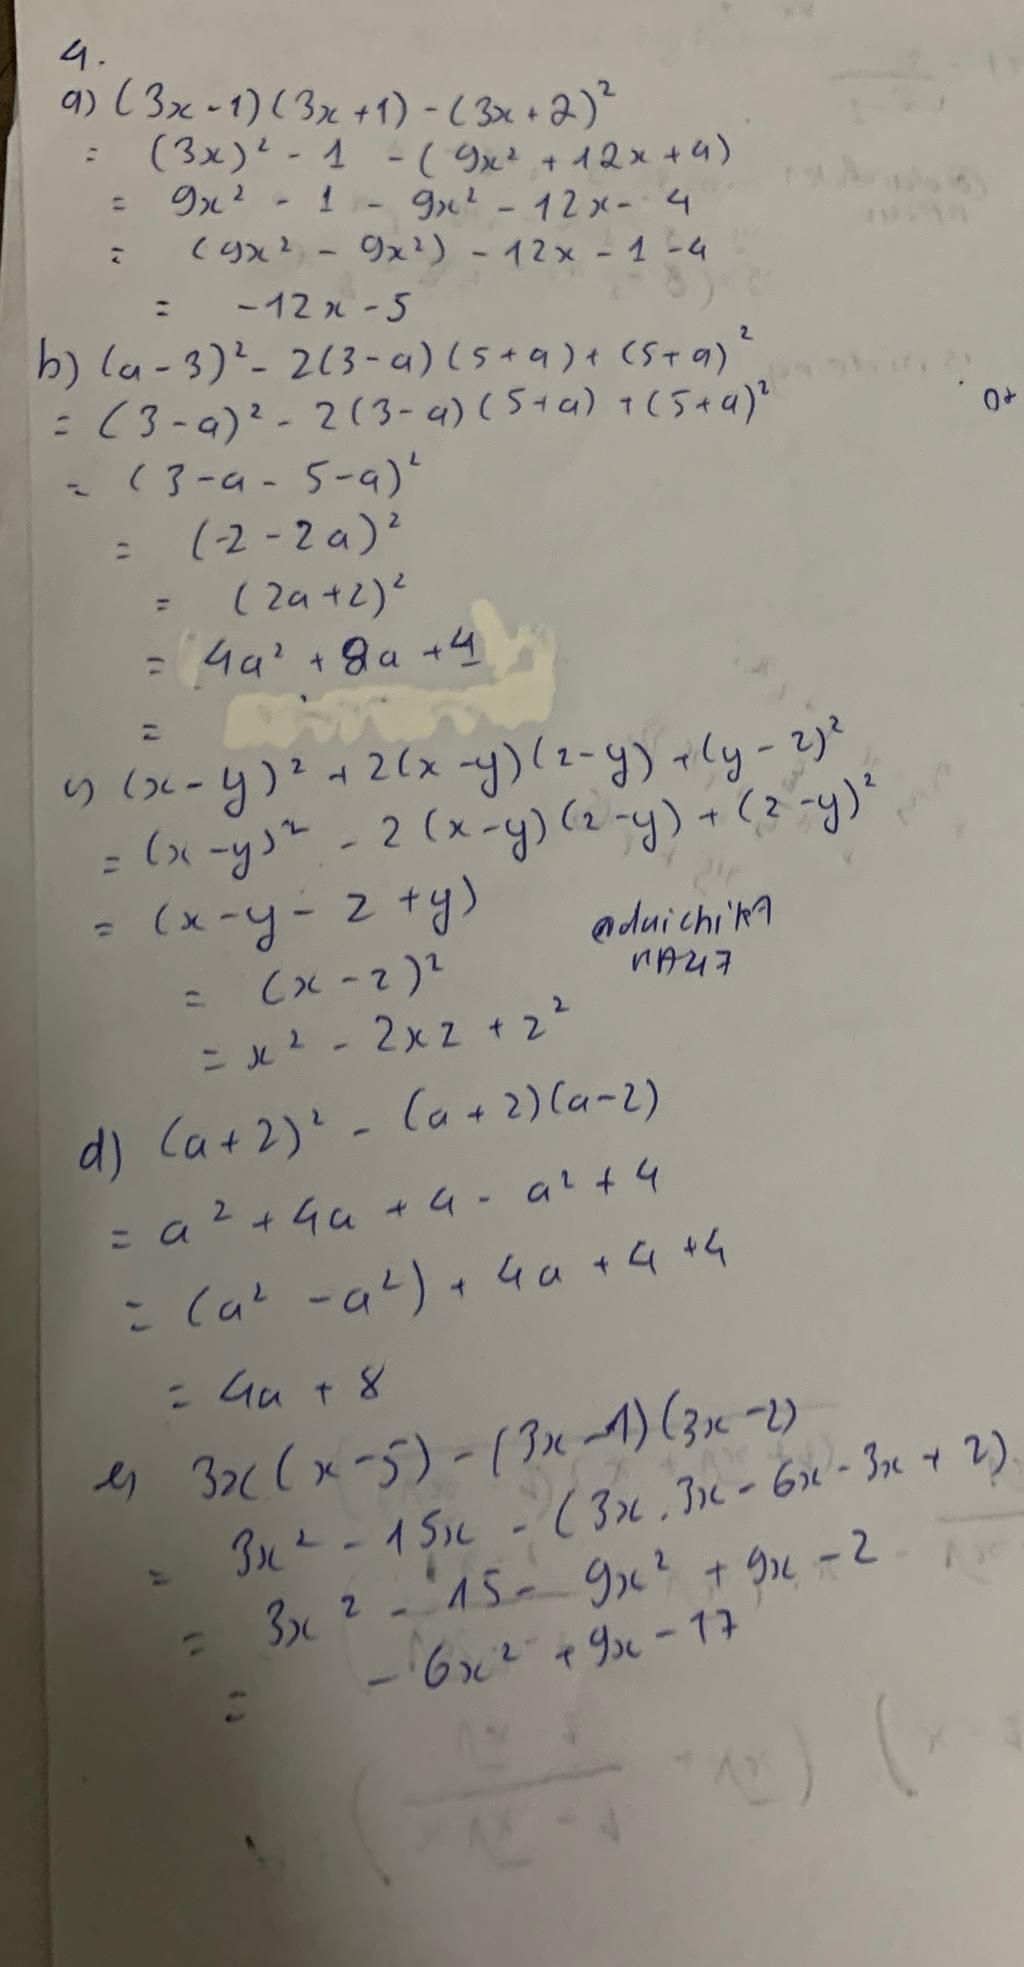 4.
a) (3x-1)(3x+1)-(3x+2)²
= (3x)² - 1 - (9x² + 12x + 4)
= 9x² - 1 - 9x² - 12x - 4
= (9x² - 9x²) - 12x - 1 - 4
= -12x - 5
b) (a-3)² - 2(3-a)(5+a) + (5+a)²
= (3-a)² - 2(3-a)(5+a) + (5+a)²
= (3-a-5-a)²
= (-2-2a)²
= (2a+2)²
= 4a² + 8a + 4
=
c) (x-y)² + 2(x-y)(z-y) + (y-z)²
= (x-y)² - 2(x-y)(z-y) + (z-y)²
= (x-y-z+y)
= (x-z)²
= x² - 2xz + z²
d) (a+2)² - (a+2)(a-2)
= a² + 4a + 4 - a² + 4
= (a² - a²) + 4a + 4 + 4
= 4a + 8
e) 3x(x-5) - (3x-1)(3x-2)
= 3x² - 15x - (3x.3x - 6x - 3x + 2)
= 3x² - 15 - 9x² + 9x - 2
= - 6x² + 9x - 17